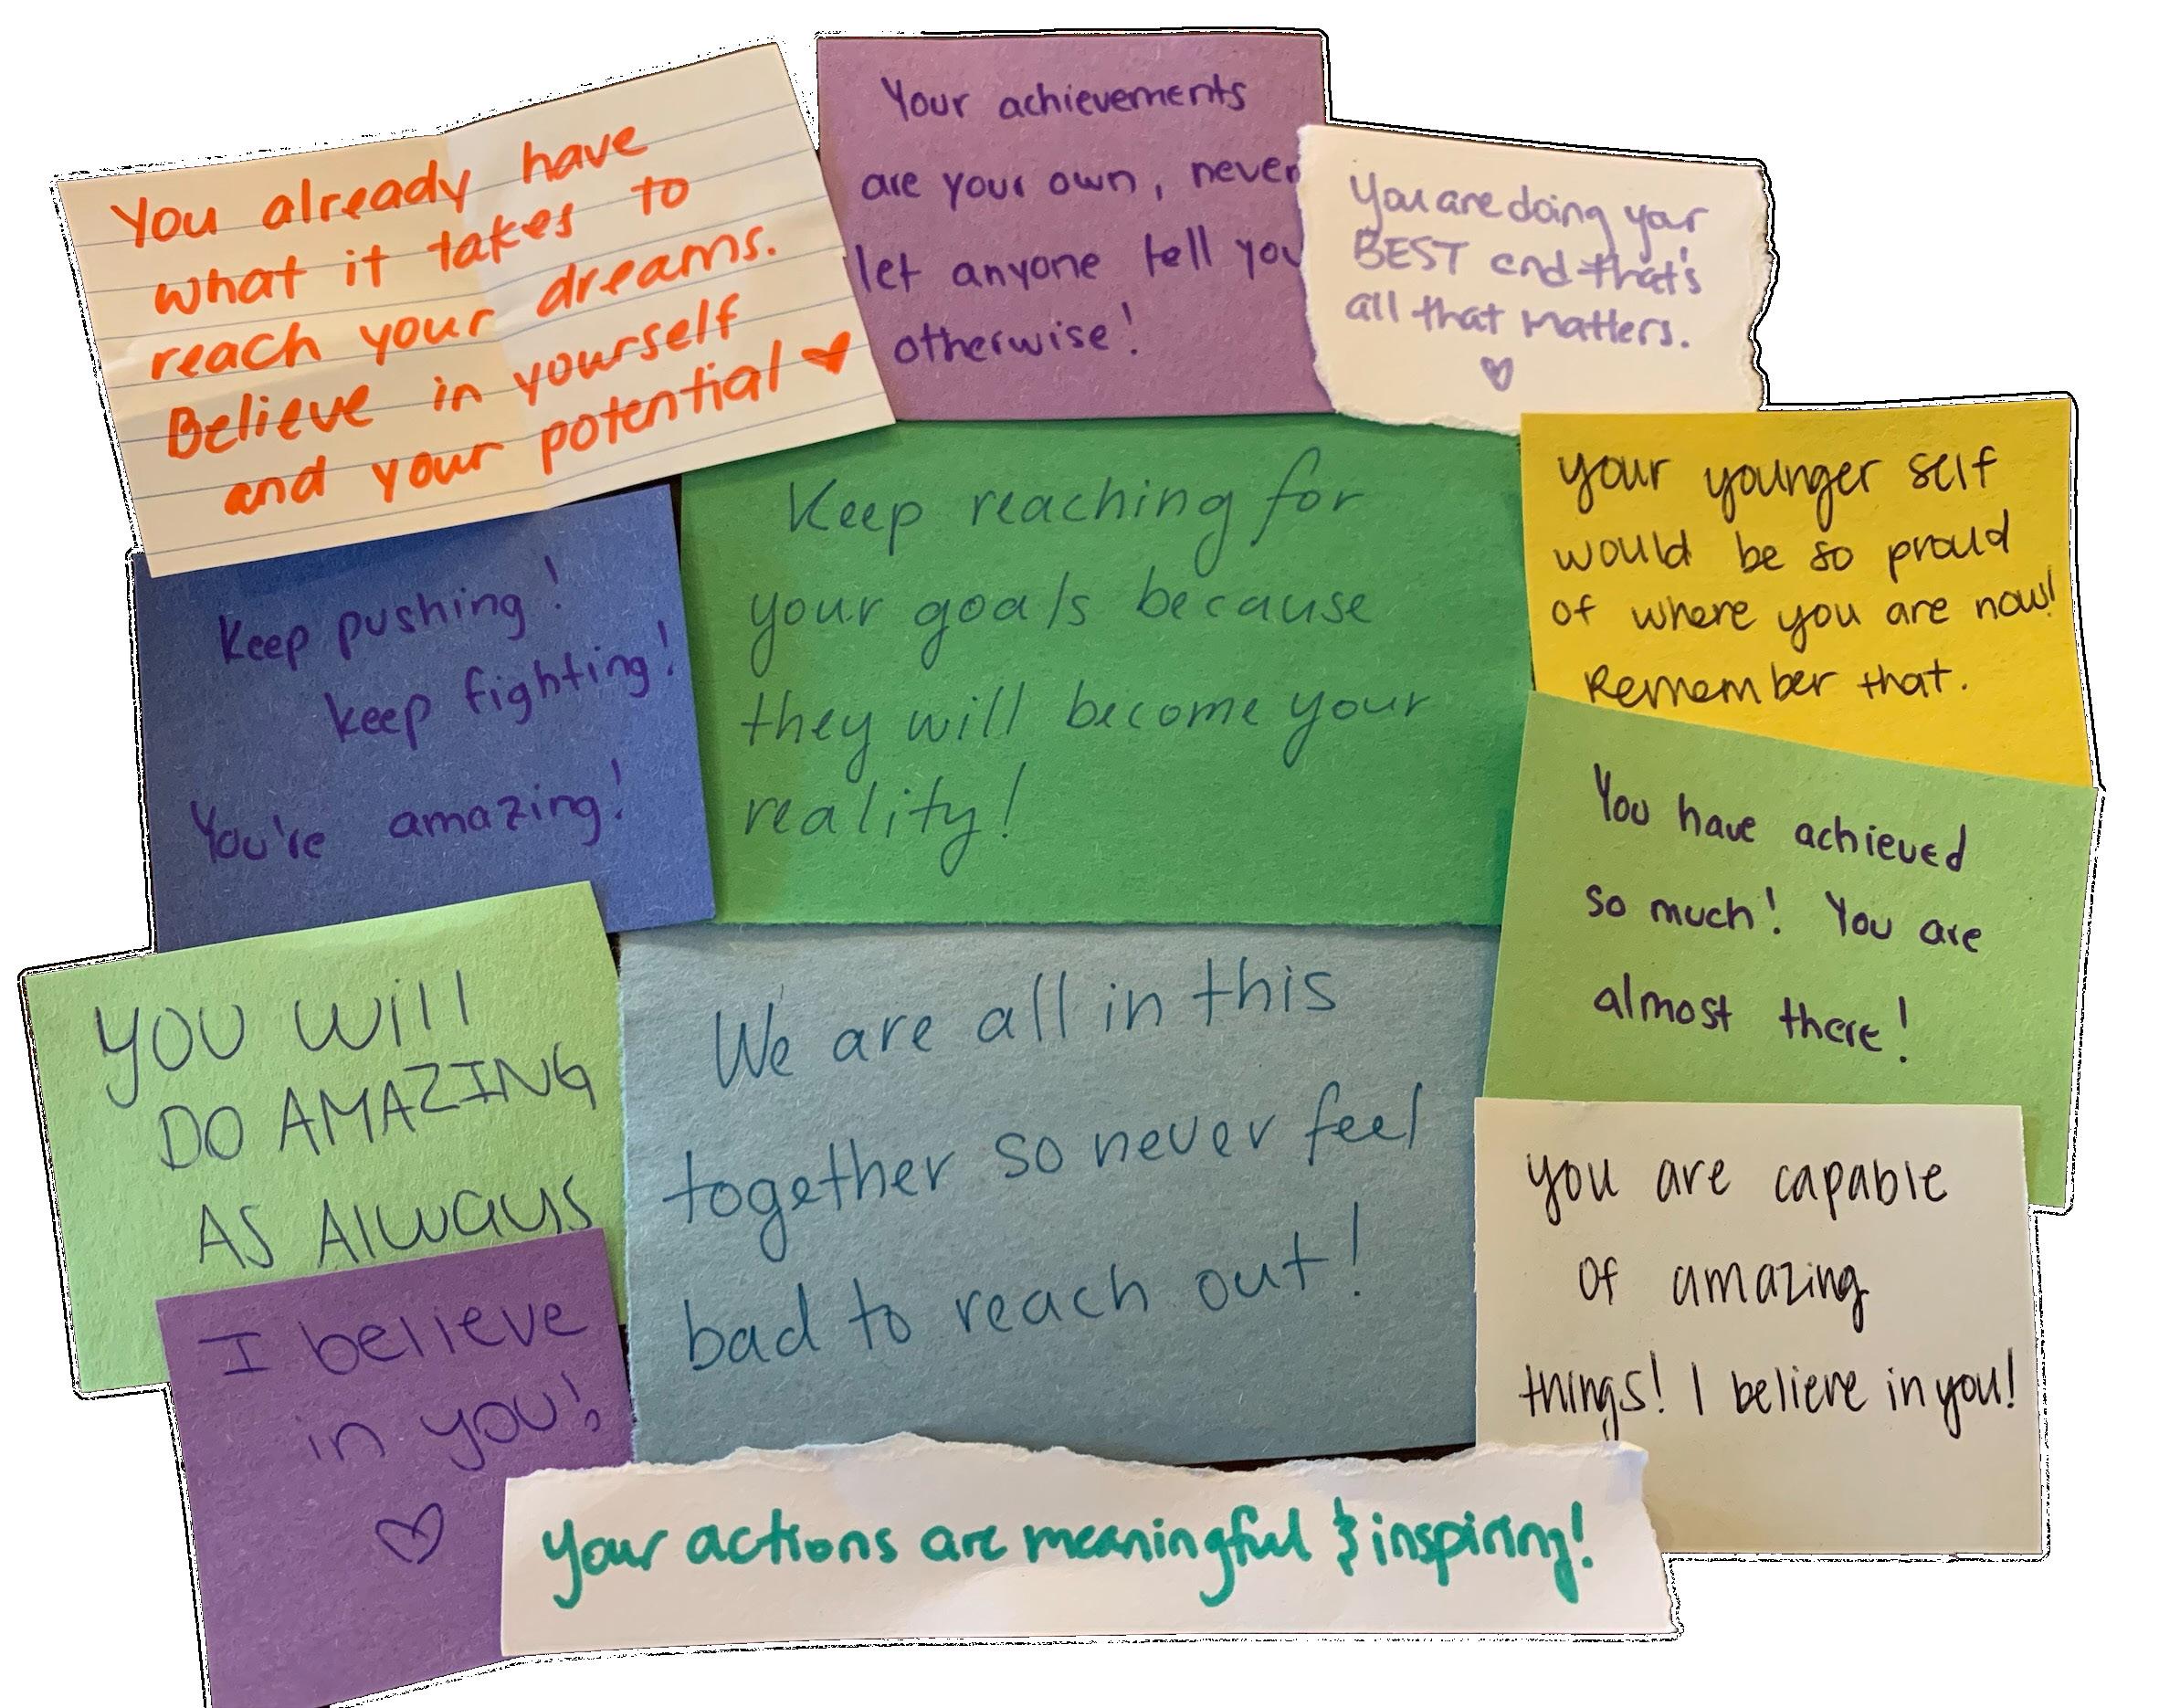 You already have
what it takes to
reach your dreams.
Believe in yourself
and your potential
Your achievements
are your own, never
let anyone tell you
otherwise!
You are doing your
BEST and that's
all that matters.
Keep pushing!
keep fighting!
You're amazing!
Keep reaching for
your goals because
they will become your
reality!
your younger self
would be so proud
of where you are now!
Remember that.
You have achieved
so much! You are
almost there!
YOU Will
DO AMAZING
AS Always
We are all in this
together so never feel
bad to reach out!
you are capable
of amazing
things! I believe in you!
I believe
in you!
Your actions are meaningful & inspiring!